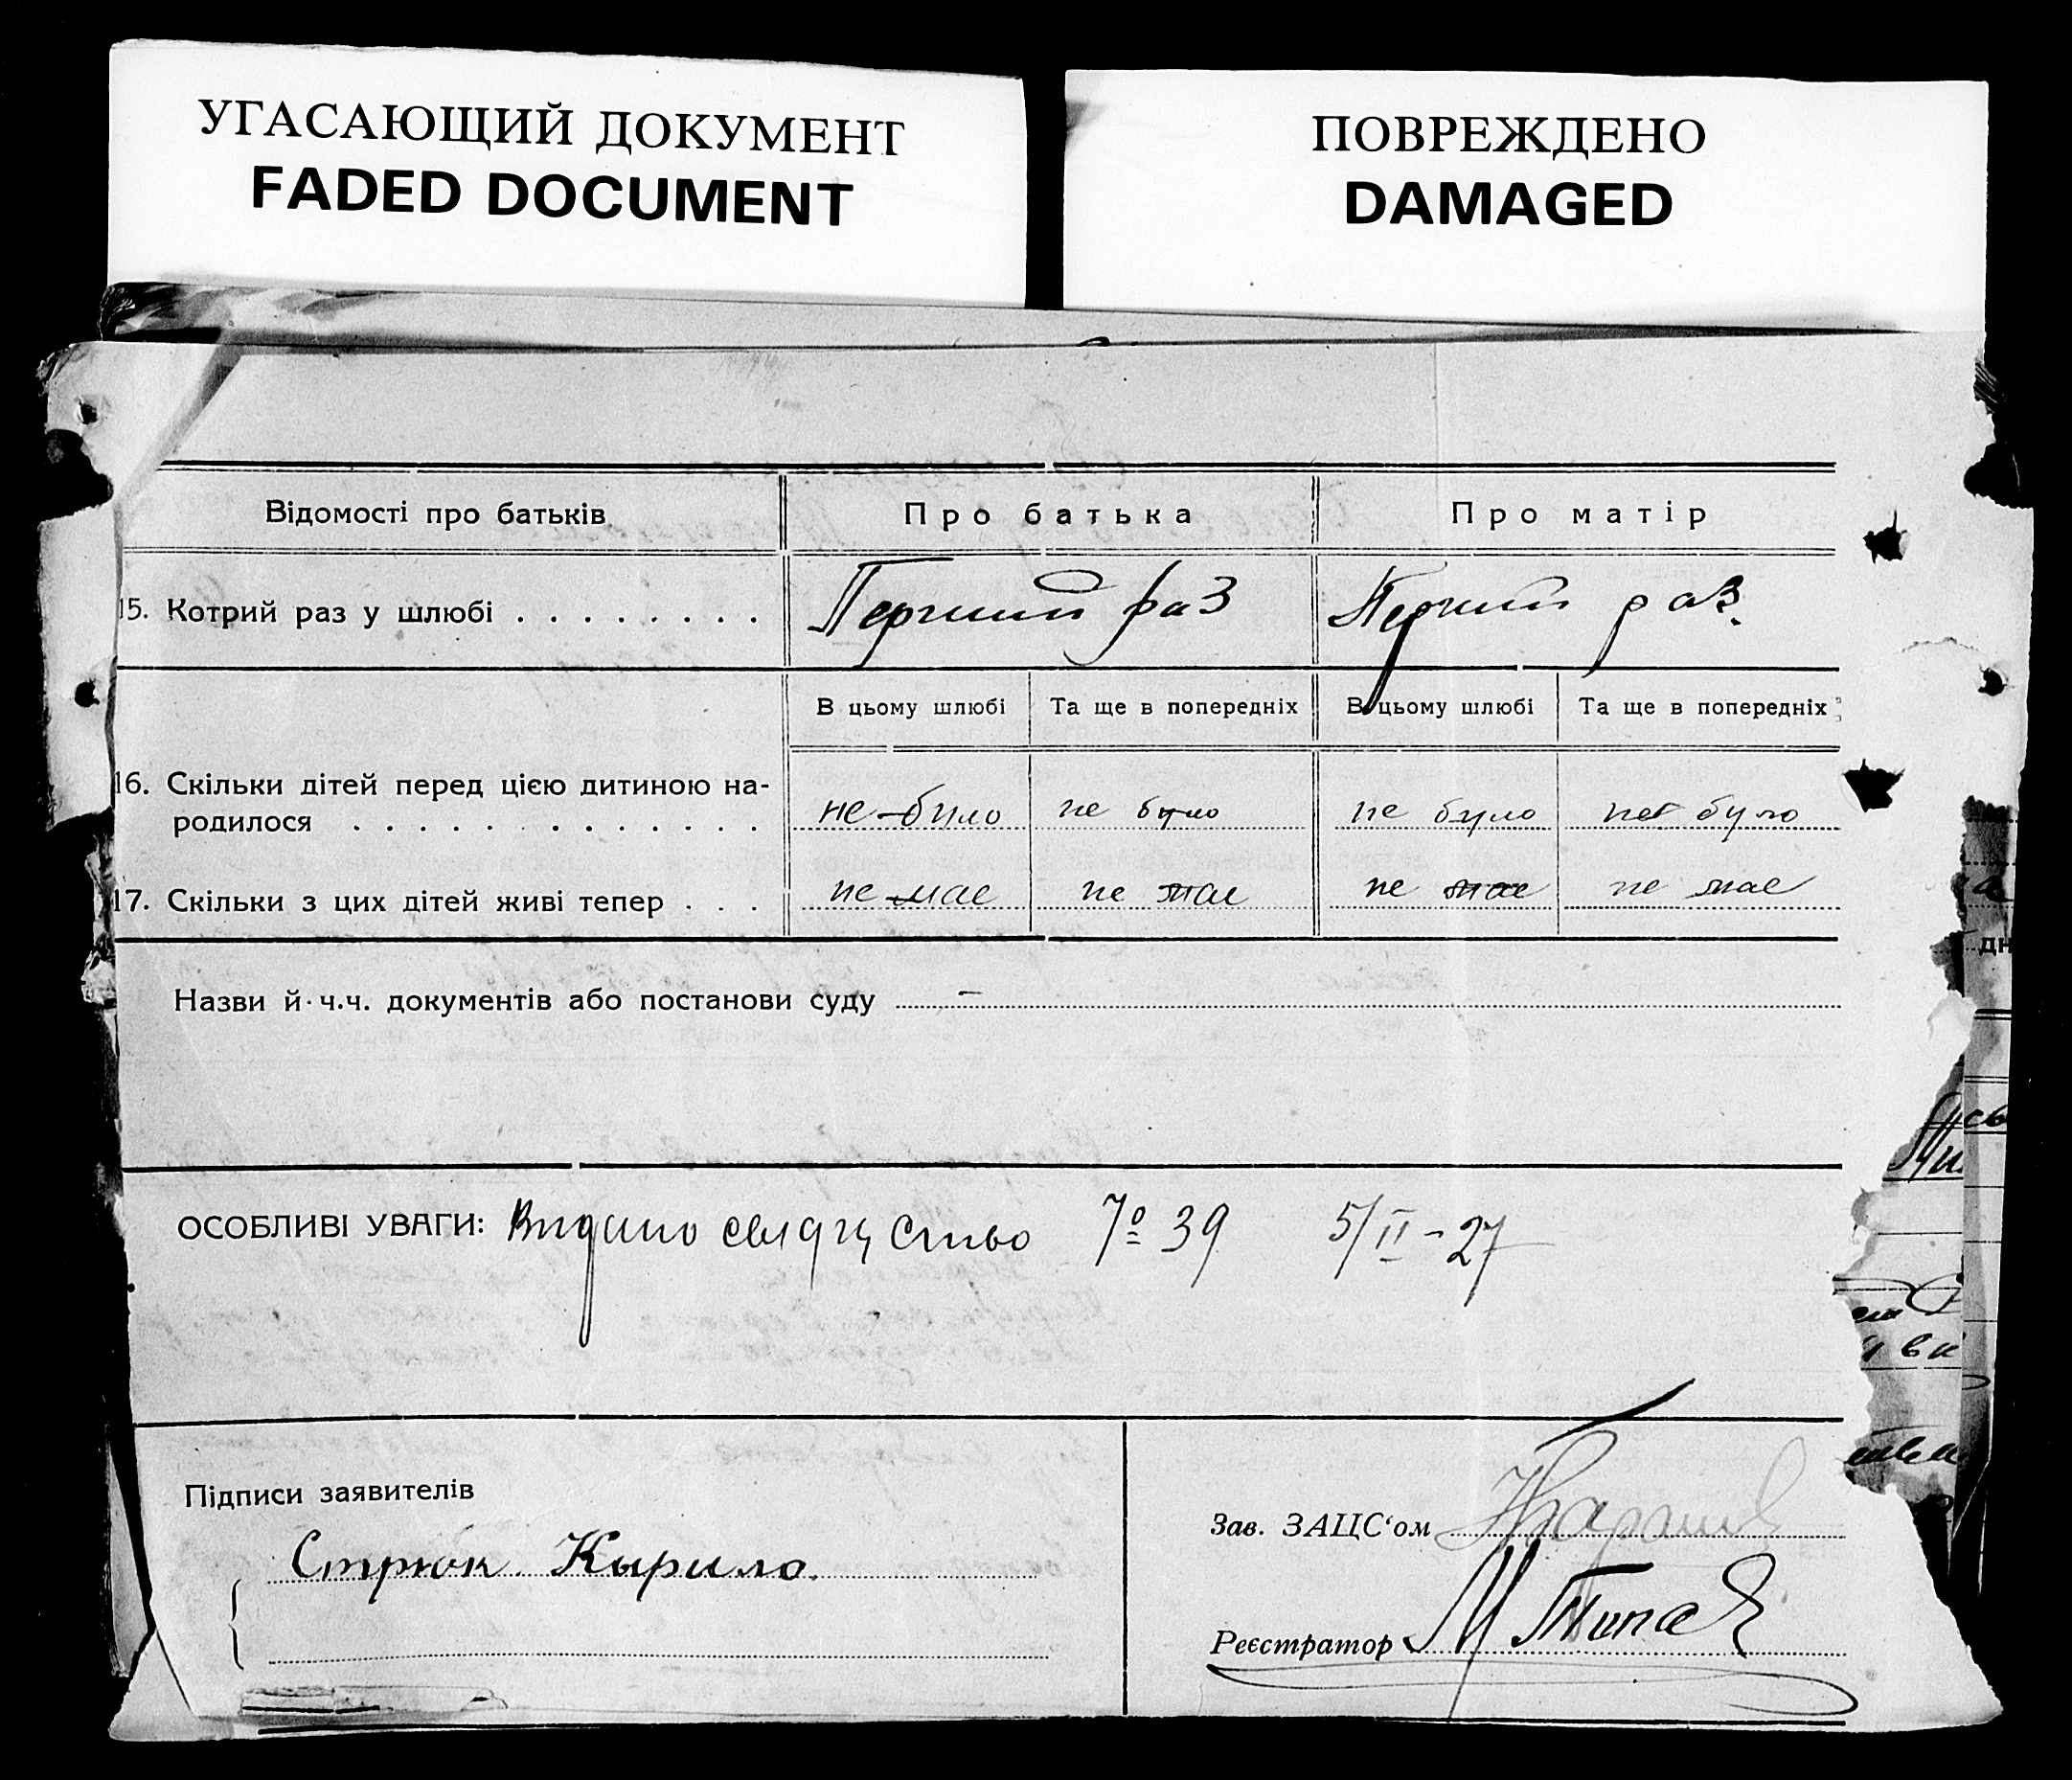 УГАСАЮЩИЙ ДОКУМЕНТ
FADED DOCUMENT
ПОВРЕЖДЕНО
DAMAGED
Відомості про батьків Про батька Про матір
15. Котрий раз у шлюбі . . . . . . . . Перший раз Перший раз.
В цьому шлюбі Та ще в попередніх В цьому шлюбі Та ще в попередніх
16. Скільки дітей перед цією дитиною на-
родилося . . . . . . . . . . . . . не було не було не було не було
17. Скільки з цих дітей живі тепер . . . не має не має не має не має
Назви й ч.ч. документів або постанови суду –
ОСОБЛИВІ УВАГИ: Видано свидуцтво № 39 5/II-27
Підписи заявителів
Зав. ЗАЦС‘ом
Стрюк Кырило.
Реєстратор